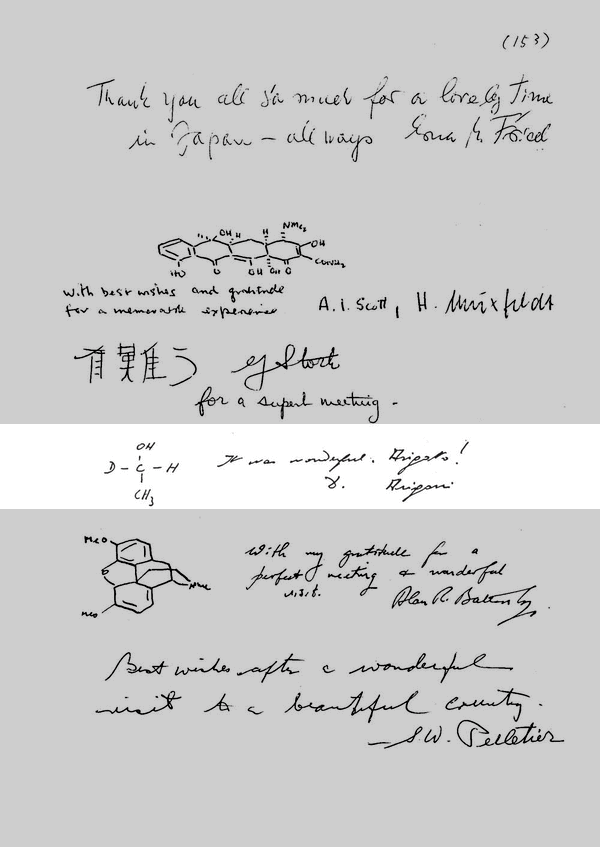 (153)
Thank you all so much for a lovely time
in Japan – all ways
OH H H NMe2
OH
HO O OH OH O CONH2
With best wishes and gratitude
for a memorable experience A. I. Scott, H. Muxfeldt
有難う G Stork
for a superb meeting -
OH
D - C - H
CH3
It was wonderful. Arigato!
D. Arigoni
MeO
O
NMe
MeO
With my gratitude for a
perfect meeting & wonderful
visit. Alan R. Battersby.
Best wishes after a wonderful
visit to a beautiful country.
— S. W. Pelletier